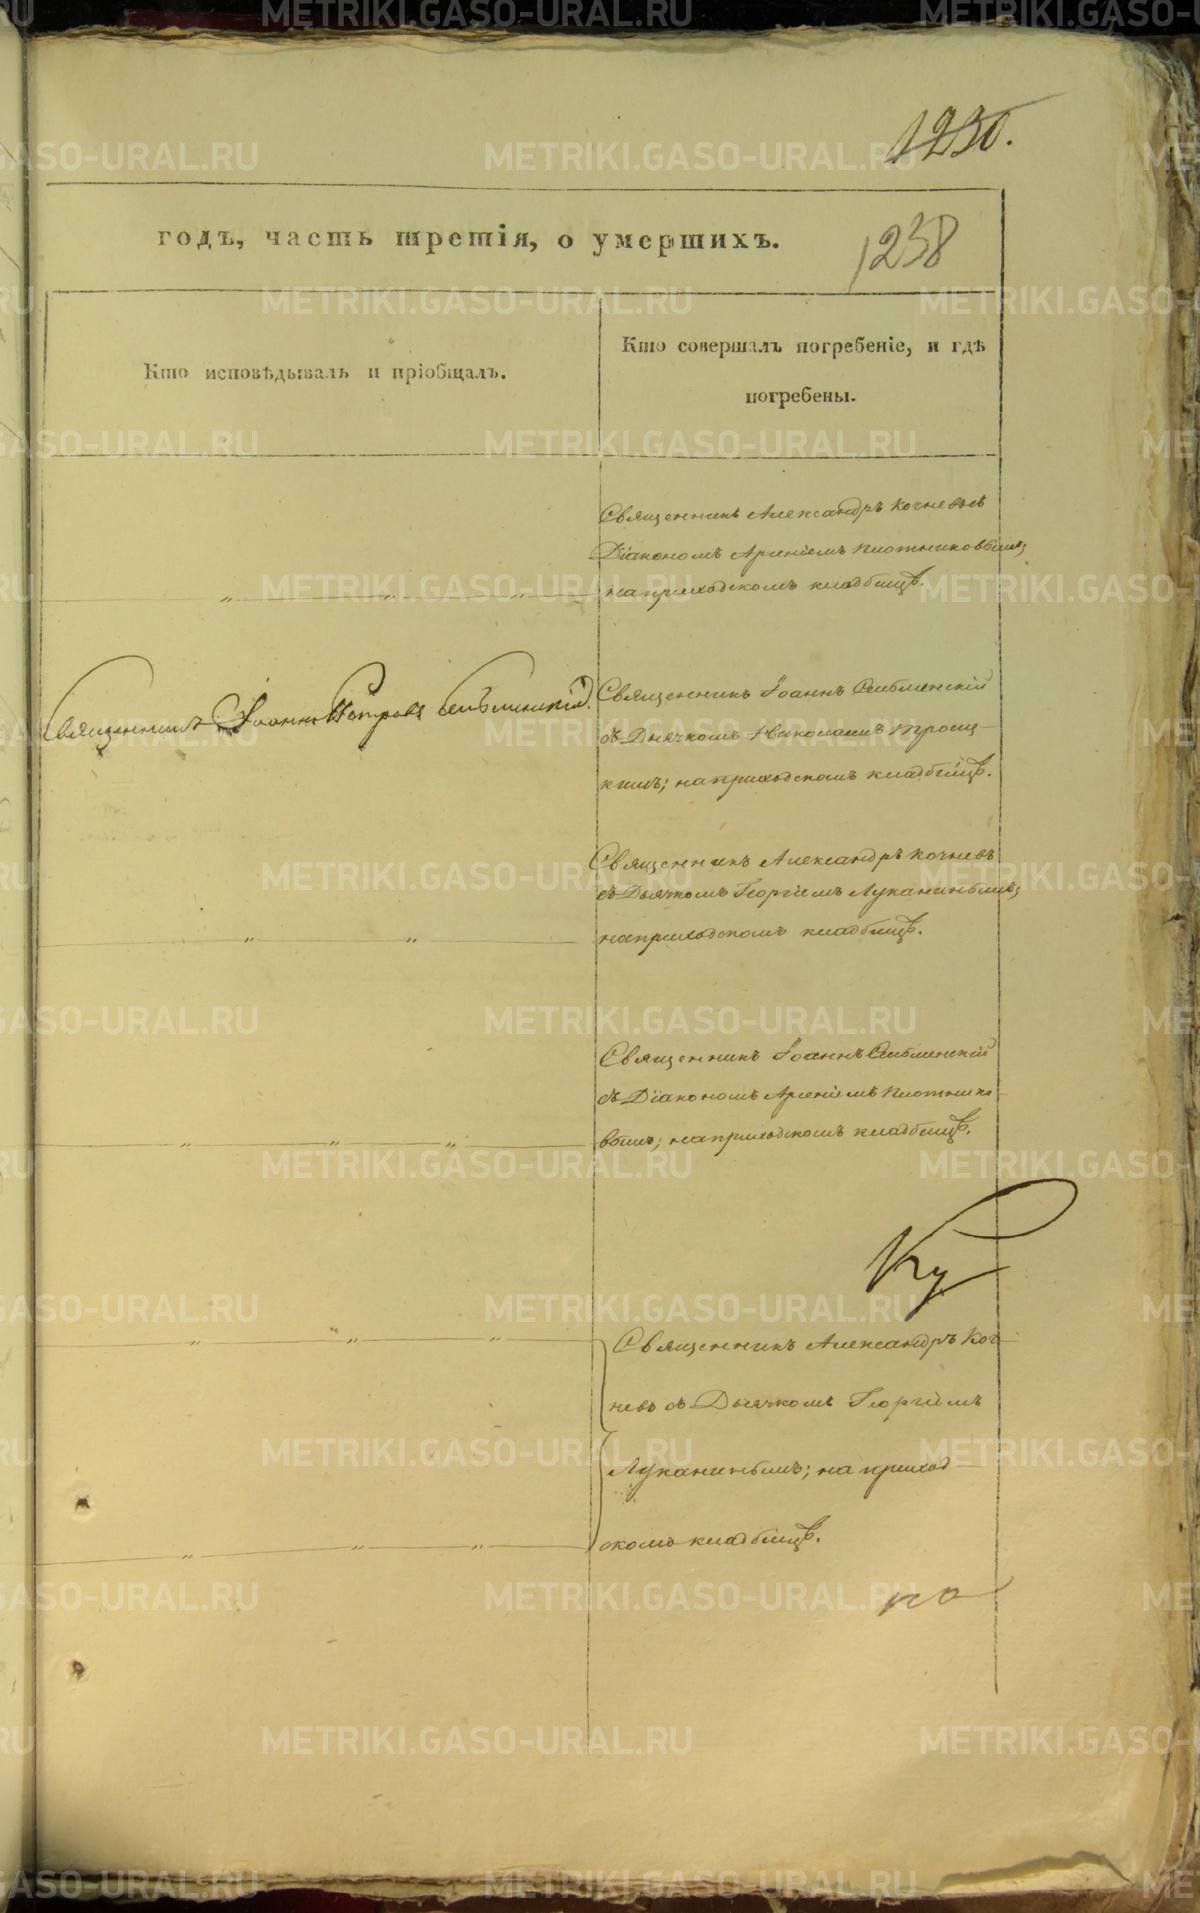 1230.
годъ, часть третія, о умершихъ.
1238
Кто исповѣдывалъ и пріобщалъ.
Кто совершалъ погребеніе, и гдѣ
погребены.
Священникъ Александръ Кочневъ съ
Діакономъ Арсеніемъ Плотниковымъ;
на приходскомъ кладбищѣ.
Священникъ Іоаннъ Петровъ Сиблинскій.
Священникъ Іоаннъ Сиблинскій
съ Дьячкомъ Николаемъ
на приходскомъ кладбищѣ.
Священникъ Александръ Кочневъ
съ Дьячкомъ Георгіемъ Луканинымъ;
на приходскомъ кладбищѣ.
Священникъ Іоаннъ Сиблинскій
съ Діакономъ Арсеніемъ Плотнико
вымъ; на приходскомъ кладбищѣ.
Священникъ Александръ Коч
невъ съ Дьячкомъ Георгіемъ
Луканинымъ; на приход
скомъ кладбищѣ.
по
METRIKI.GASO-URAL.RU